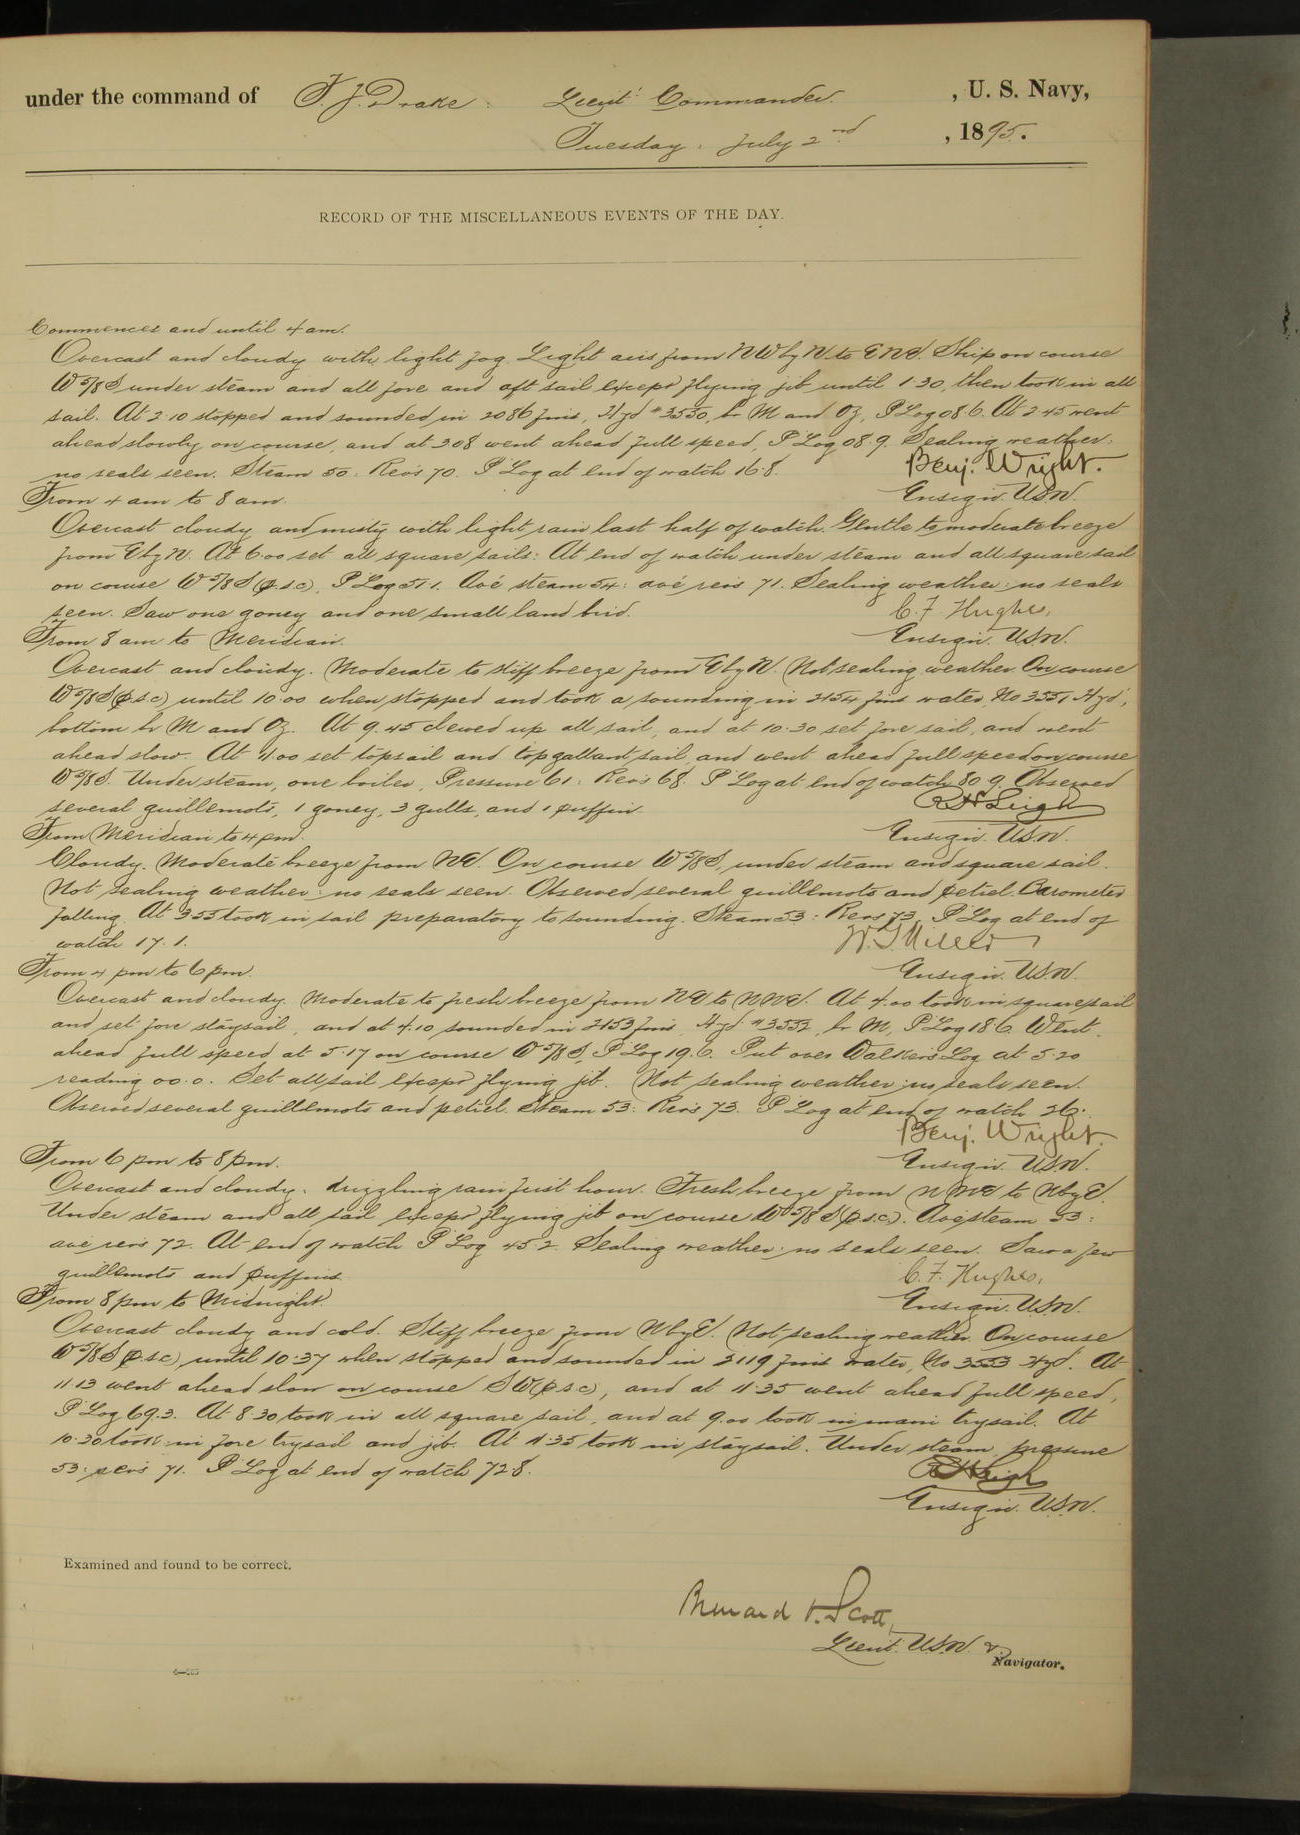 under the command of F. J. Drake. Lieut. Commander. , U. S. Navy,
Tuesday. July 2nd , 1895.
RECORD OF THE MISCELLANEOUS EVENTS OF THE DAY.
Commences and until 4 am.
Overcast and cloudy with light fog. Light airs from NW by N to ENE. Ship on course
W 5/8 S under steam and all fore and aft sail except flying jib until 1.30, then took in all
sail. At 2.10 stopped and sounded in 2086 fms, Hyd #3550, br M and Oz, P Log 08.6. At 2.45 went
ahead slowly on course, and at 308 went ahead full speed, P Log 08.9. Sealing weather:
no seals seen. Steam 50: Revs 70. P Log at end of watch 16.8. Benj. Wright.
From 4 am to 8 am. Ensign. U.S.N.
Overcast cloudy and misty with light rain last half of watch. Gentle to moderate breeze
from E by N. At 6.00 set all square sails: At end of watch under steam and all square sail
on course W 5/8 S (p.s.c), P Log 51.1. Ave steam 54: ave revs 71. Sealing weather: no seals
seen. Saw one goney and one small land bird. C. F. Hughes,
From 8 am to Meridian. Ensign. U.S.N.
Overcast and cloudy. Moderate to stiff breeze from E by N. Not sealing weather. On course
W 5/8 S (p.s.c) until 10.00 when stopped and took a sounding in 2154 fms water, No 3551 Hyd,
bottom br M and Oz. At 9.45 clewed up all sail, and at 10.30 set fore sail, and went
ahead slow. At 11.00 set topsail and topgallant sail and went ahead full speed on course
W 5/8 S. Under steam, one boiler, Pressure 61: Revs 68. P Log at end of watch 80.9. Observed
several guillemots, 1 goney, 3 gulls, and 1 puffin. R H Leigh
From Meridian to 4 pm. Ensign. U.S.N.
Cloudy. Moderate breeze from NE. On course W 5/8 S, under steam and square sail.
Not sealing weather: no seals seen. Observed several guillemots and petrel. Barometer
falling. At 3.55 took in sail preparatory to sounding. Steam 53: Revs 73, P Log at end of
watch 17.1. W. G. Miller
From 4 pm to 6 pm. Ensign. U.S.N.
Overcast and cloudy. Moderate to fresh breeze from NE to NNE. At 4.00 took in square sail
and set fore staysail, and at 4.10 sounded in 2153 fms, Hyd #3552, br M, P Log 18.6. Went
ahead full speed at 5.17 on course W 5/8 S, P Log 19.6. Put over Walker's Log at 5.20
reading 00.0. Set all sail except flying jib. Not sealing weather: no seals seen.
Observed several guillemots and petrel. Steam 53: Revs 73. P Log at end of watch 26.
Benj. Wright.
From 6 pm to 8 pm. Ensign. U.S.N.
Overcast and cloudy: drizzling rain first hour. Fresh breeze from NNE to N by E.
Under steam and all sail except flying jib on course W 5/8 S (p.s.c.). Ave steam 53:
ave revs 72. At end of watch P Log 45.2. Sealing weather: no seals seen. Saw a few
guillemots and puffins. C. F. Hughes,
From 8 pm to Midnight. Ensign. U.S.N.
Overcast cloudy and cold. Stiff breeze from N by E. Not sealing weather. On course
W 5/8 S (p.s.c) until 10.37 when stopped and sounded in 2119 fms water, No 3553 Hyd. At
11.13 went ahead slow on course SW (p.s.c), and at 11.35 went ahead full speed,
P Log 69.3. At 8.30 took in all square sail, and at 9.00 took in main trysail. At
10.30 took in fore trysail and jib. At 11.35 took in staysail. Under steam, pressure
53: revs 71. P Log at end of watch 72.8. R H Leigh
Ensign. U.S.N.
Examined and found to be correct.
Bernard O. Scott,
Lieut. U.S.N. &
Navigator.